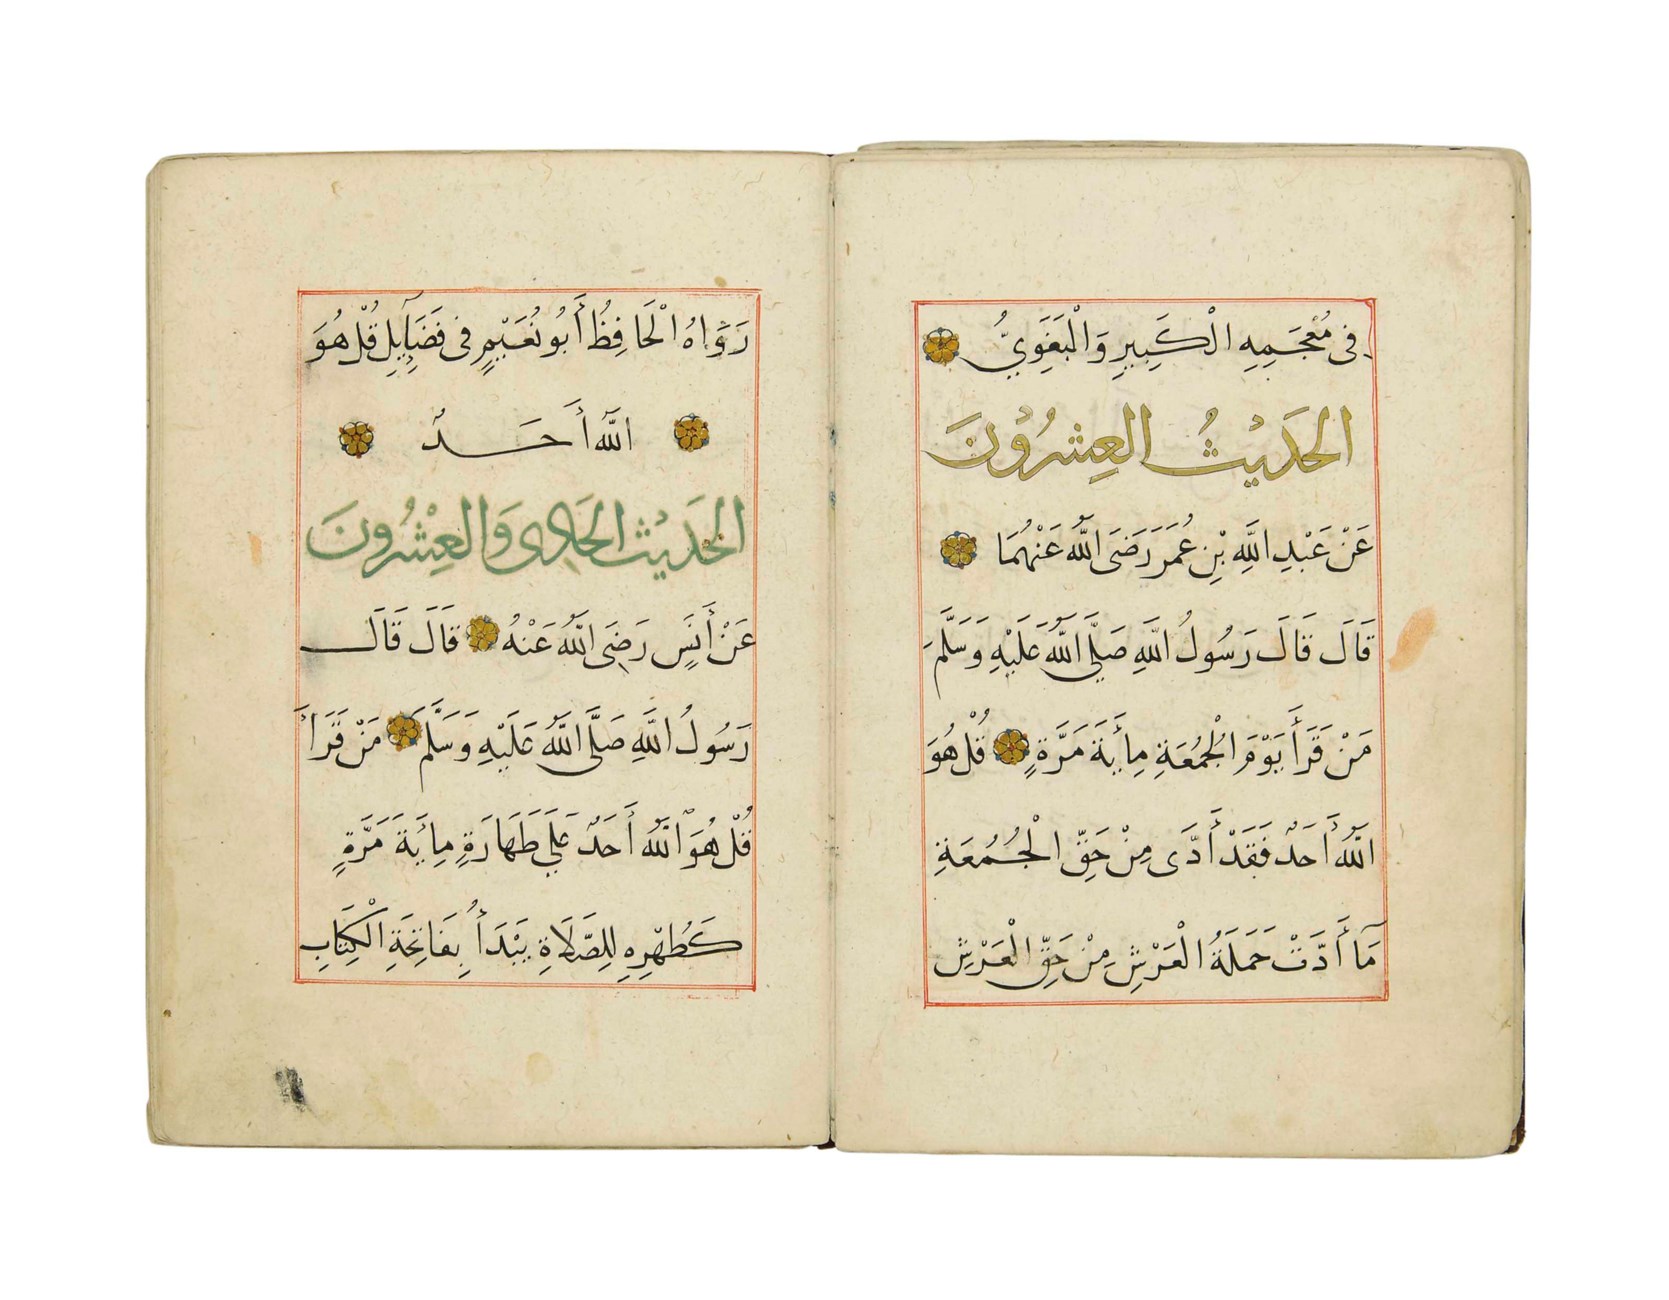 فِى مُعْجَمِهِ الْكَبِيرِ وَالْبَغَوِيُّ
الحَدِيْثُ العِشْرُوْنَ
عَنْ عَبْدِ اللَّهِ بْنِ عُمَرَ رَضَىَ اللَّهُ عَنْهُمَا
قَالَ قَالَ رَسُولُ اللَّهِ صَلَّى اللَّهُ عَلَيْهِ وَسَلَّمَ
مَنْ قَرَأَ يَوْمَ الْجُمُعَةِ مِأيَةَ مَرَّةٍ قُلْ هُوَ
اللَّهُ أَحَدٌ فَقَدْ أَدَّى مِنْ حَقِّ الْجُمُعَةِ
مَآ أَدَّتْ حَمَلَةُ الْعَرْشِ مِنْ حَقِّ الْعَرْشِ
رَوَاهُ الْحَافِظُ أَبُو نُعَيْمٍ فى فَضَآيِلِ قُلْ هُوَ
اللَّهُ أَحَدٌ
الحَدِيْث الحَادِى وَالعِشْرُونَ
عَنْ أَنَسٍ رَضِىَ اللَّهُ عَنْهُ قَالَ قَالَ
رَسُولُ اللَّهِ صَلَّى اللَّهُ عَلَيْهِ وَسَلَّمَ مَنْ قَرَأَ
قُلْ هُوَ اللَّهُ أَحَدٌ عَلَى طَهَارَةٍ مِأيَةَ مَرَّةٍ
كَطُهْرِهِ لِلصَّلَاةِ يَبْدَأُ بِفَاتِحَةِ الْكِتَابِ